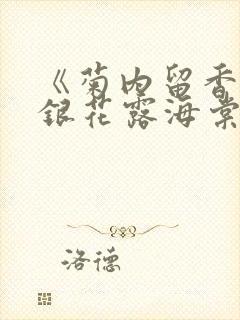 《菊内留香
银花露海棠
洛德